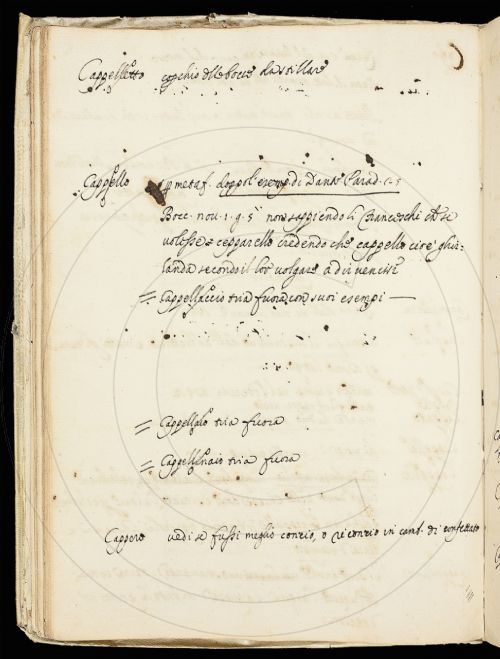 Cappelletto coperchio delle bocce da stillare
Cappello p metaf. doppo l'esemp. di Dante Parad. c. 25
Bocc. nov. 1. g. 5 non sappiendo li Franceschi che se
volesse Cepparello credendo che cappello cioè ghir=
landa secondo il lor volgare a dir venisse
= Cappellaccio tria fuora con suoi esempi —
= Cappellaio tria fuora
= Cappellinaio tria fuora
Cappero vedi se fussi meglio concio, o riconcio in camb. di confettato